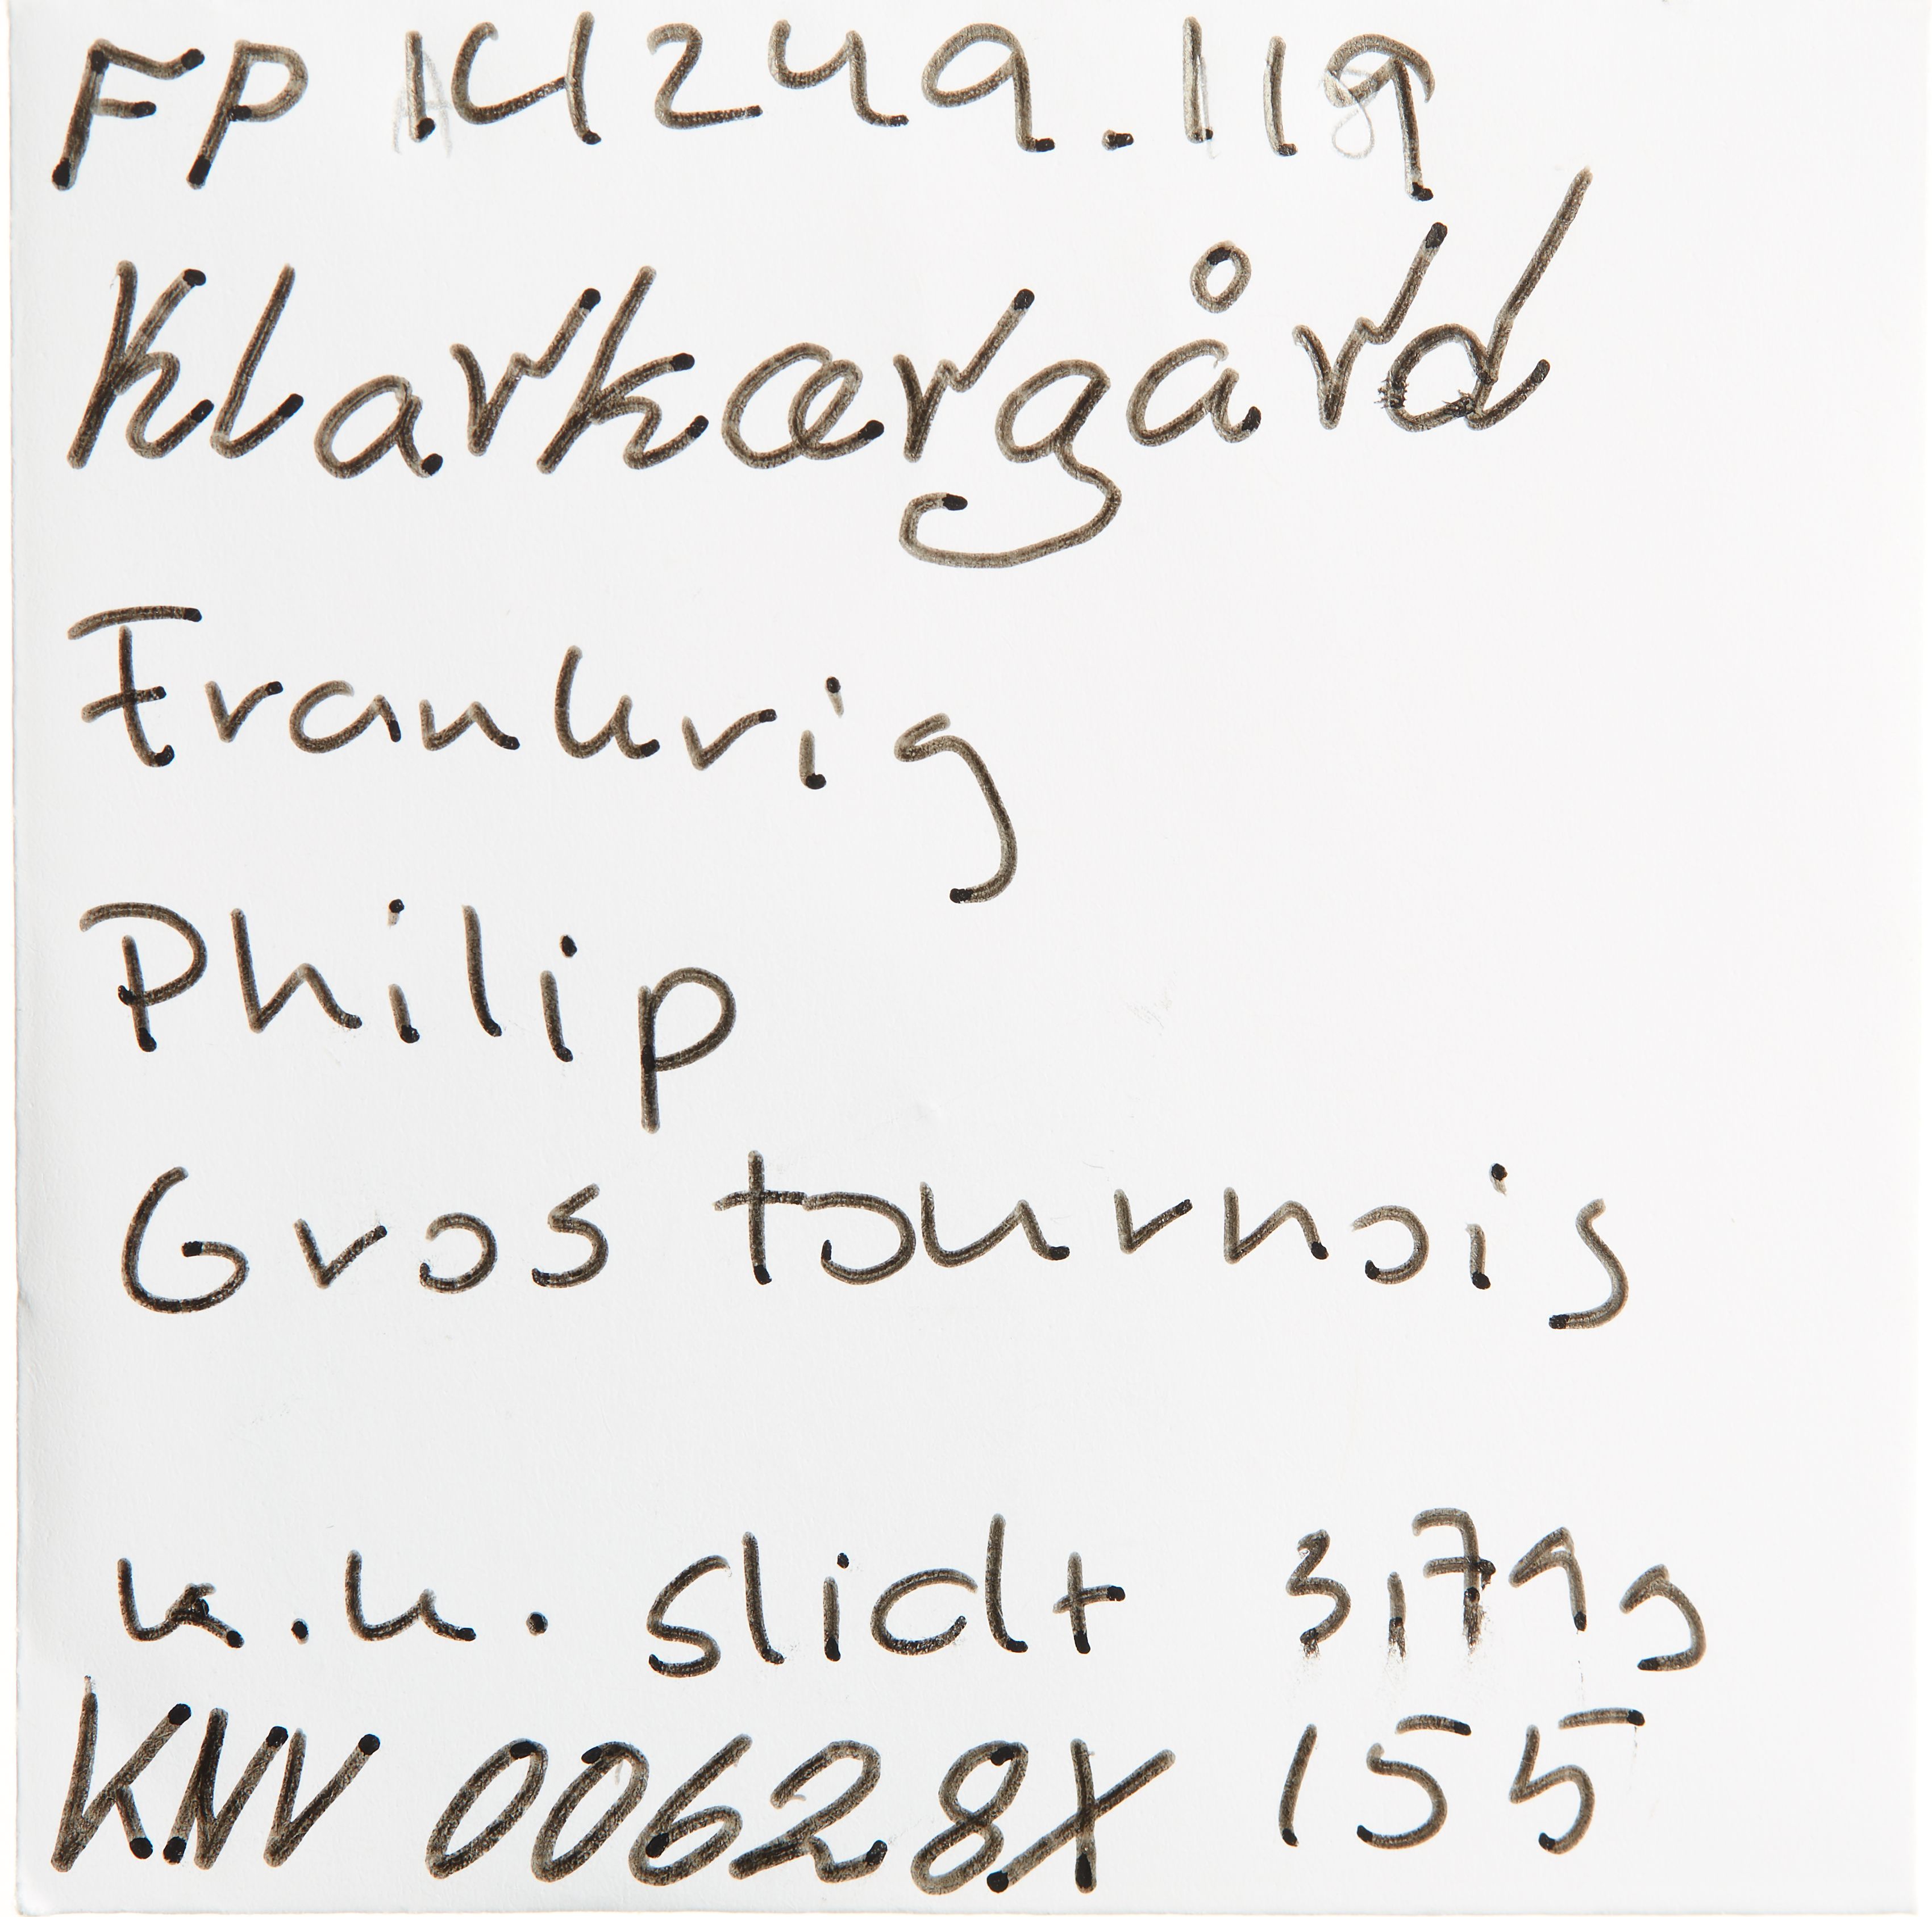 FP 14249.119
Klarkærgård
Frankrig
Philip
Gros tournois
k.k. slidt 3,79g
KNV 00628X 155